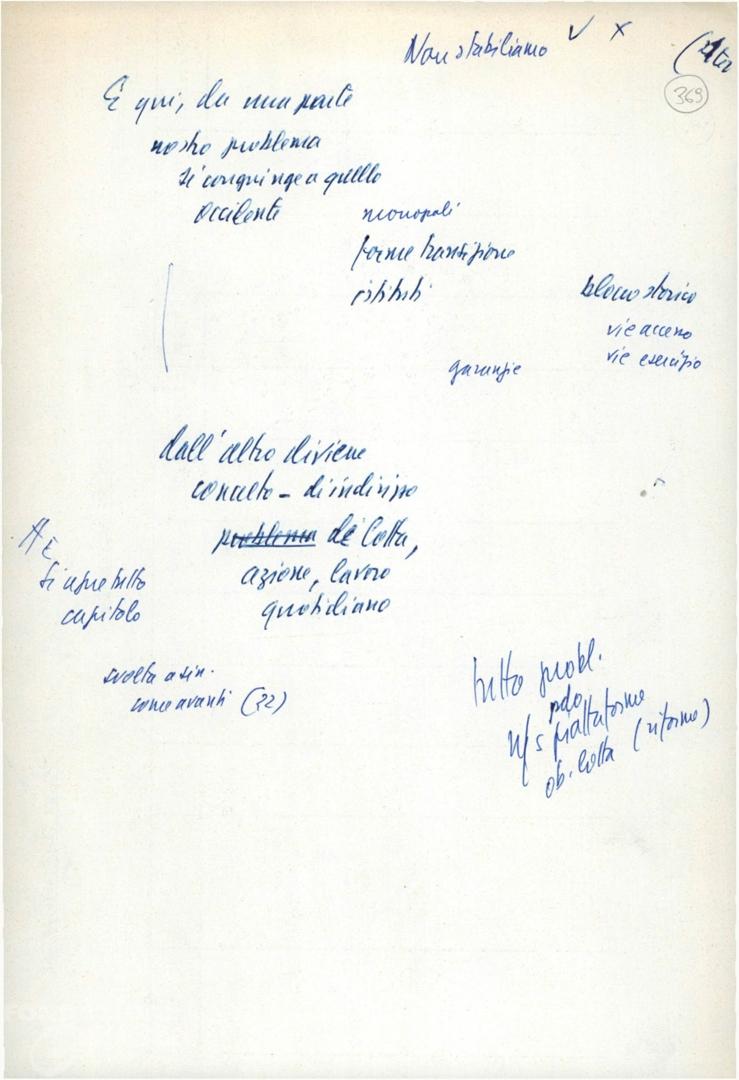 Non stabiliamo
369
E qui, da una parte
nostro problema
si congiunge a quello
occidente
monopoli
forme transizione
istituti
blocco storico
vie accesso
vie esercizio
garanzie
dall'altro diviene
concreto - di indirizzo
problema di lotta,
azione, lavoro
quotidiano
si apre tutto
capitolo
svolta a sin.
come avanti (32)
tutto probl.
pdo
n/s piattaforme
ob. lotta (riforme)